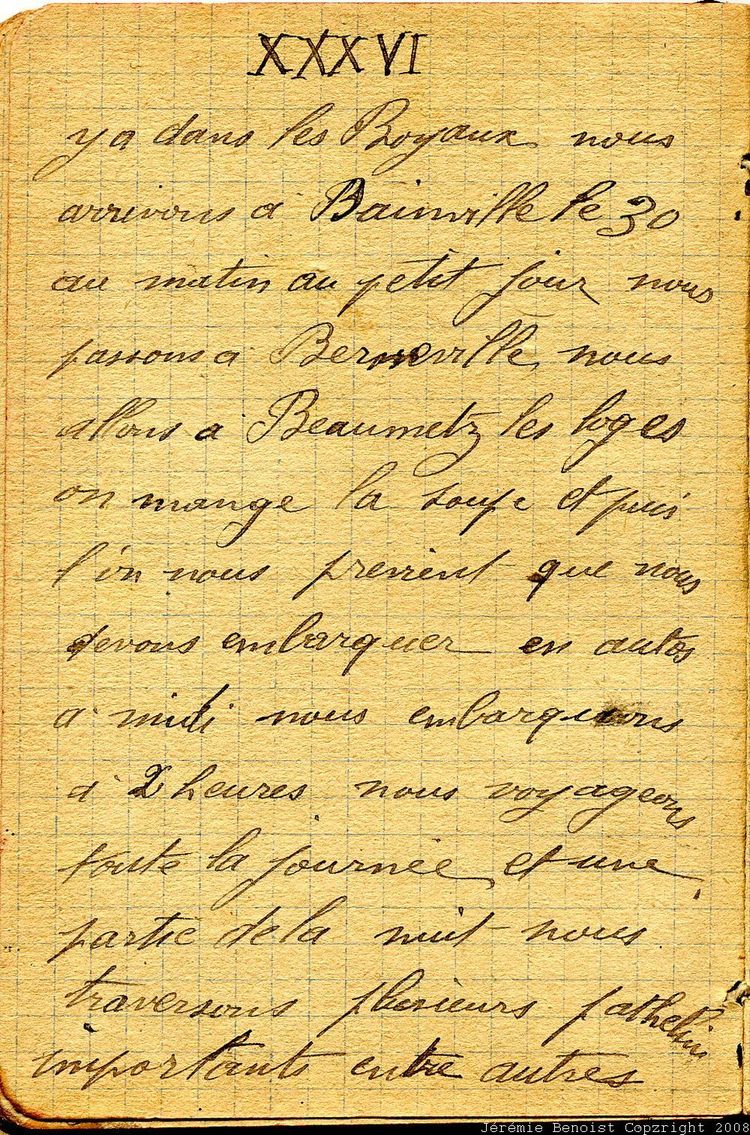 XXXVI
y a dans les Boyaux nous
arrivons a Bainville le 30
au matin au petit jour nous
passons a Berneville nous
allons a Beaumetz les loges
on mange la soupe et puis
l'on nous previent que nous
devons embarquer en autos
a midi nous embarquons
a 2 heures nous voyageons
toute la journée et une
partie de la nuit nous
traversons plusieurs
importants entre autres
Jérémie Benoist Copzright 2008